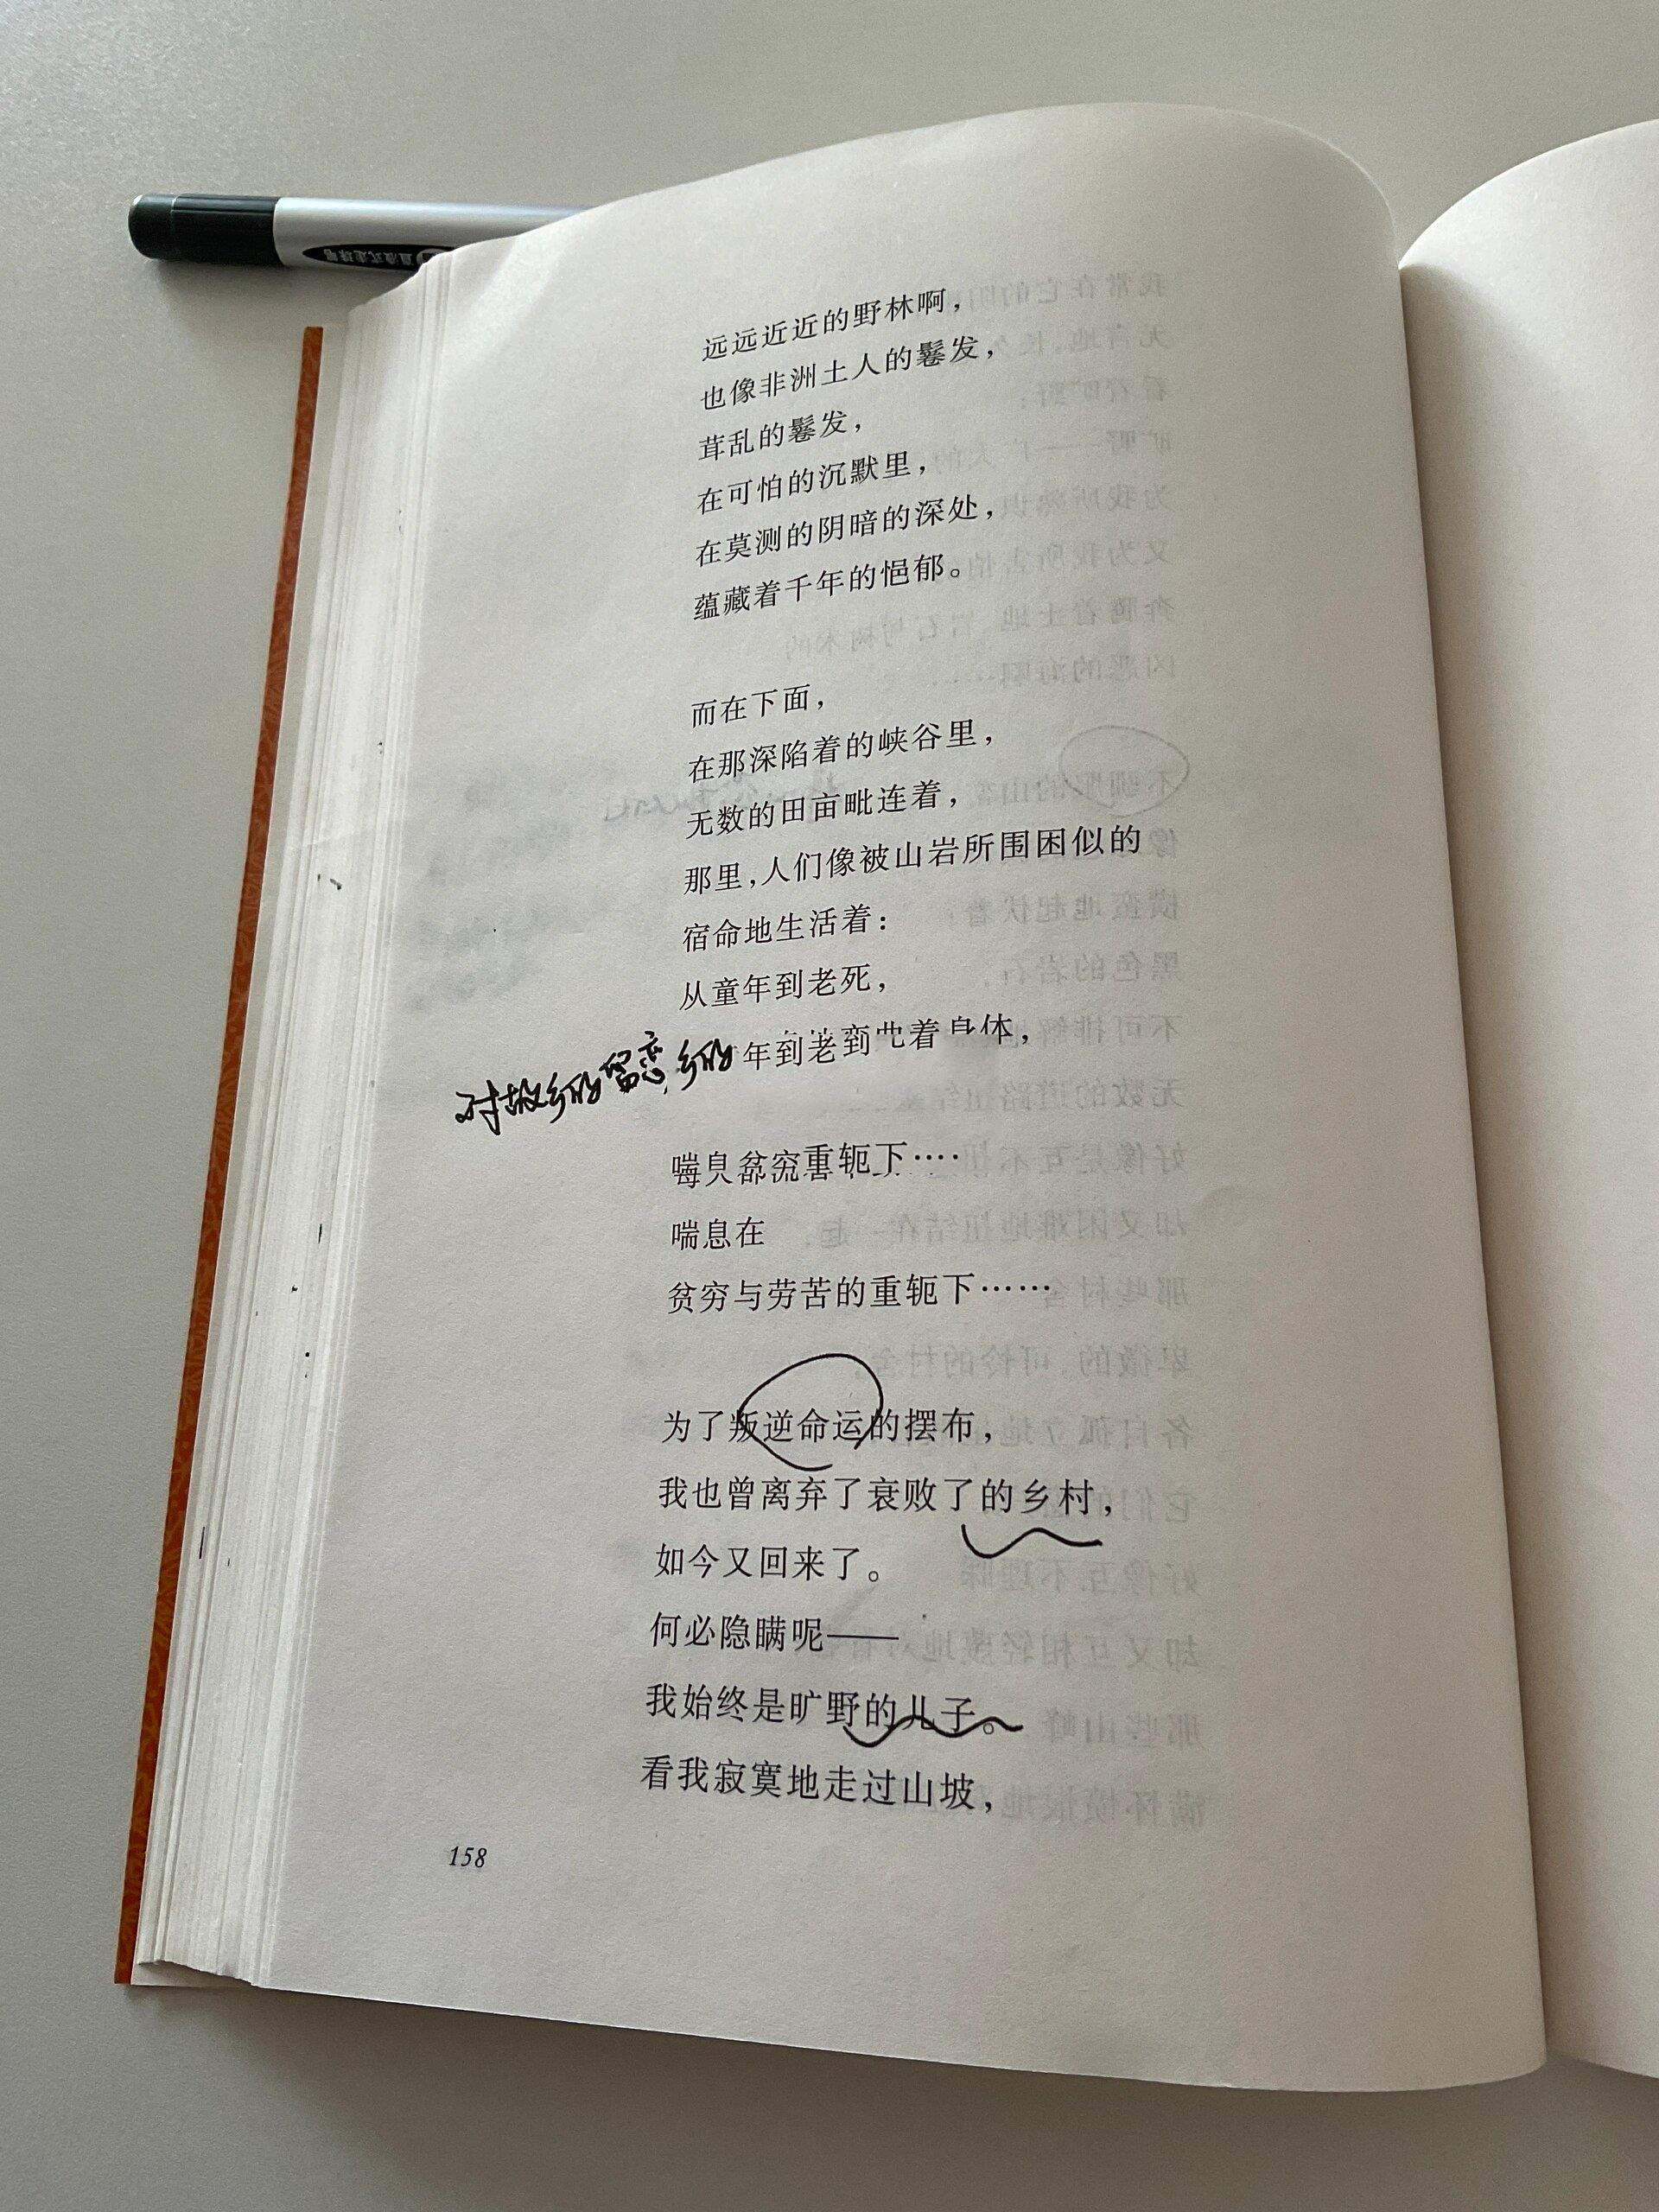 远远近近的野林啊，
也像非洲土人的鬈发，
茸乱的鬈发，
在可怕的沉默里，
在莫测的阴暗的深处，
蕴藏着千年的悒郁。
而在下面，
在那深陷着的峡谷里，
无数的田亩毗连着，
那里，人们像被山岩所围困似的
宿命地生活着：
从童年到老死，
对故乡的留恋，乡的
年到老 着身体，
重轭下····
喘息在
贫穷与劳苦的重轭下……
为了叛逆命运的摆布，
我也曾离弃了衰败了的乡村，
如今又回来了。
何必隐瞒呢——
我始终是旷野的儿子。
看我寂寞地走过山坡，
158